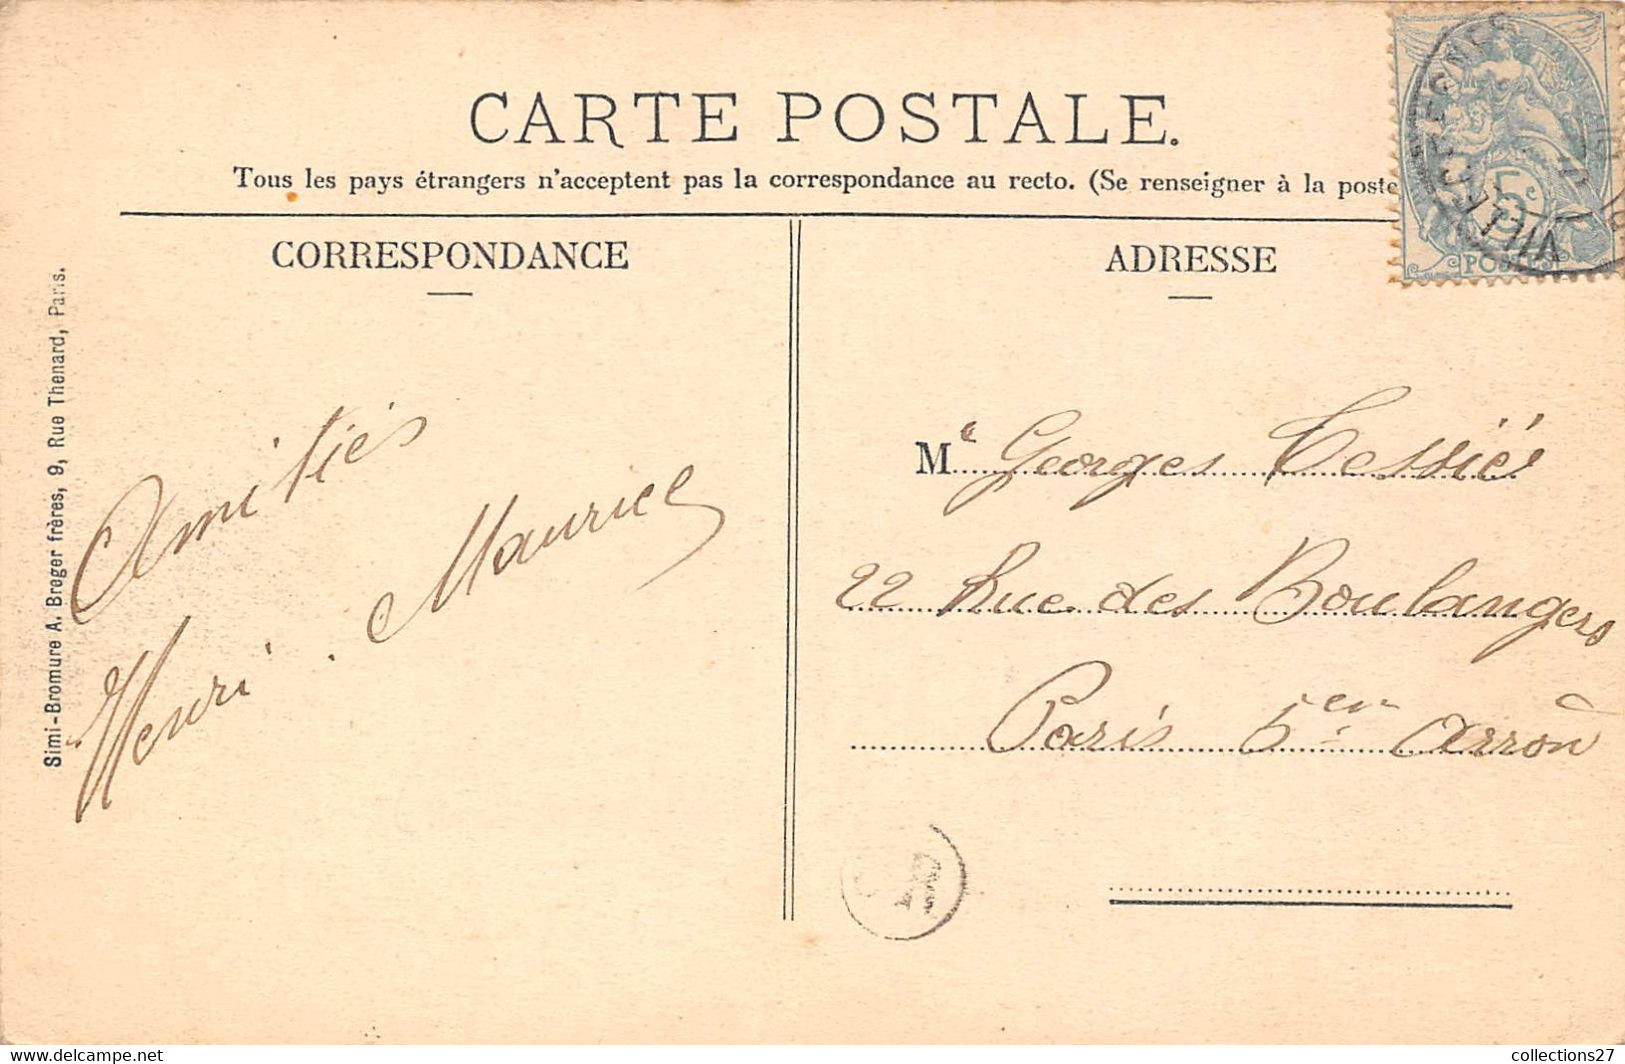 CARTE POSTALE.
Tous les pays étrangers n'acceptent pas la correspondance au recto. (Se renseigner à la poste
CORRESPONDANCE
ADRESSE
Simi-Bromure A. Breger frères, 9, Rue Thenard, Paris.
Amitiés
Henri. Maurice
M e Georges Tessié
22 Rue des Boulangers
Paris 5 en Arron
5 c
POSTES
collections27